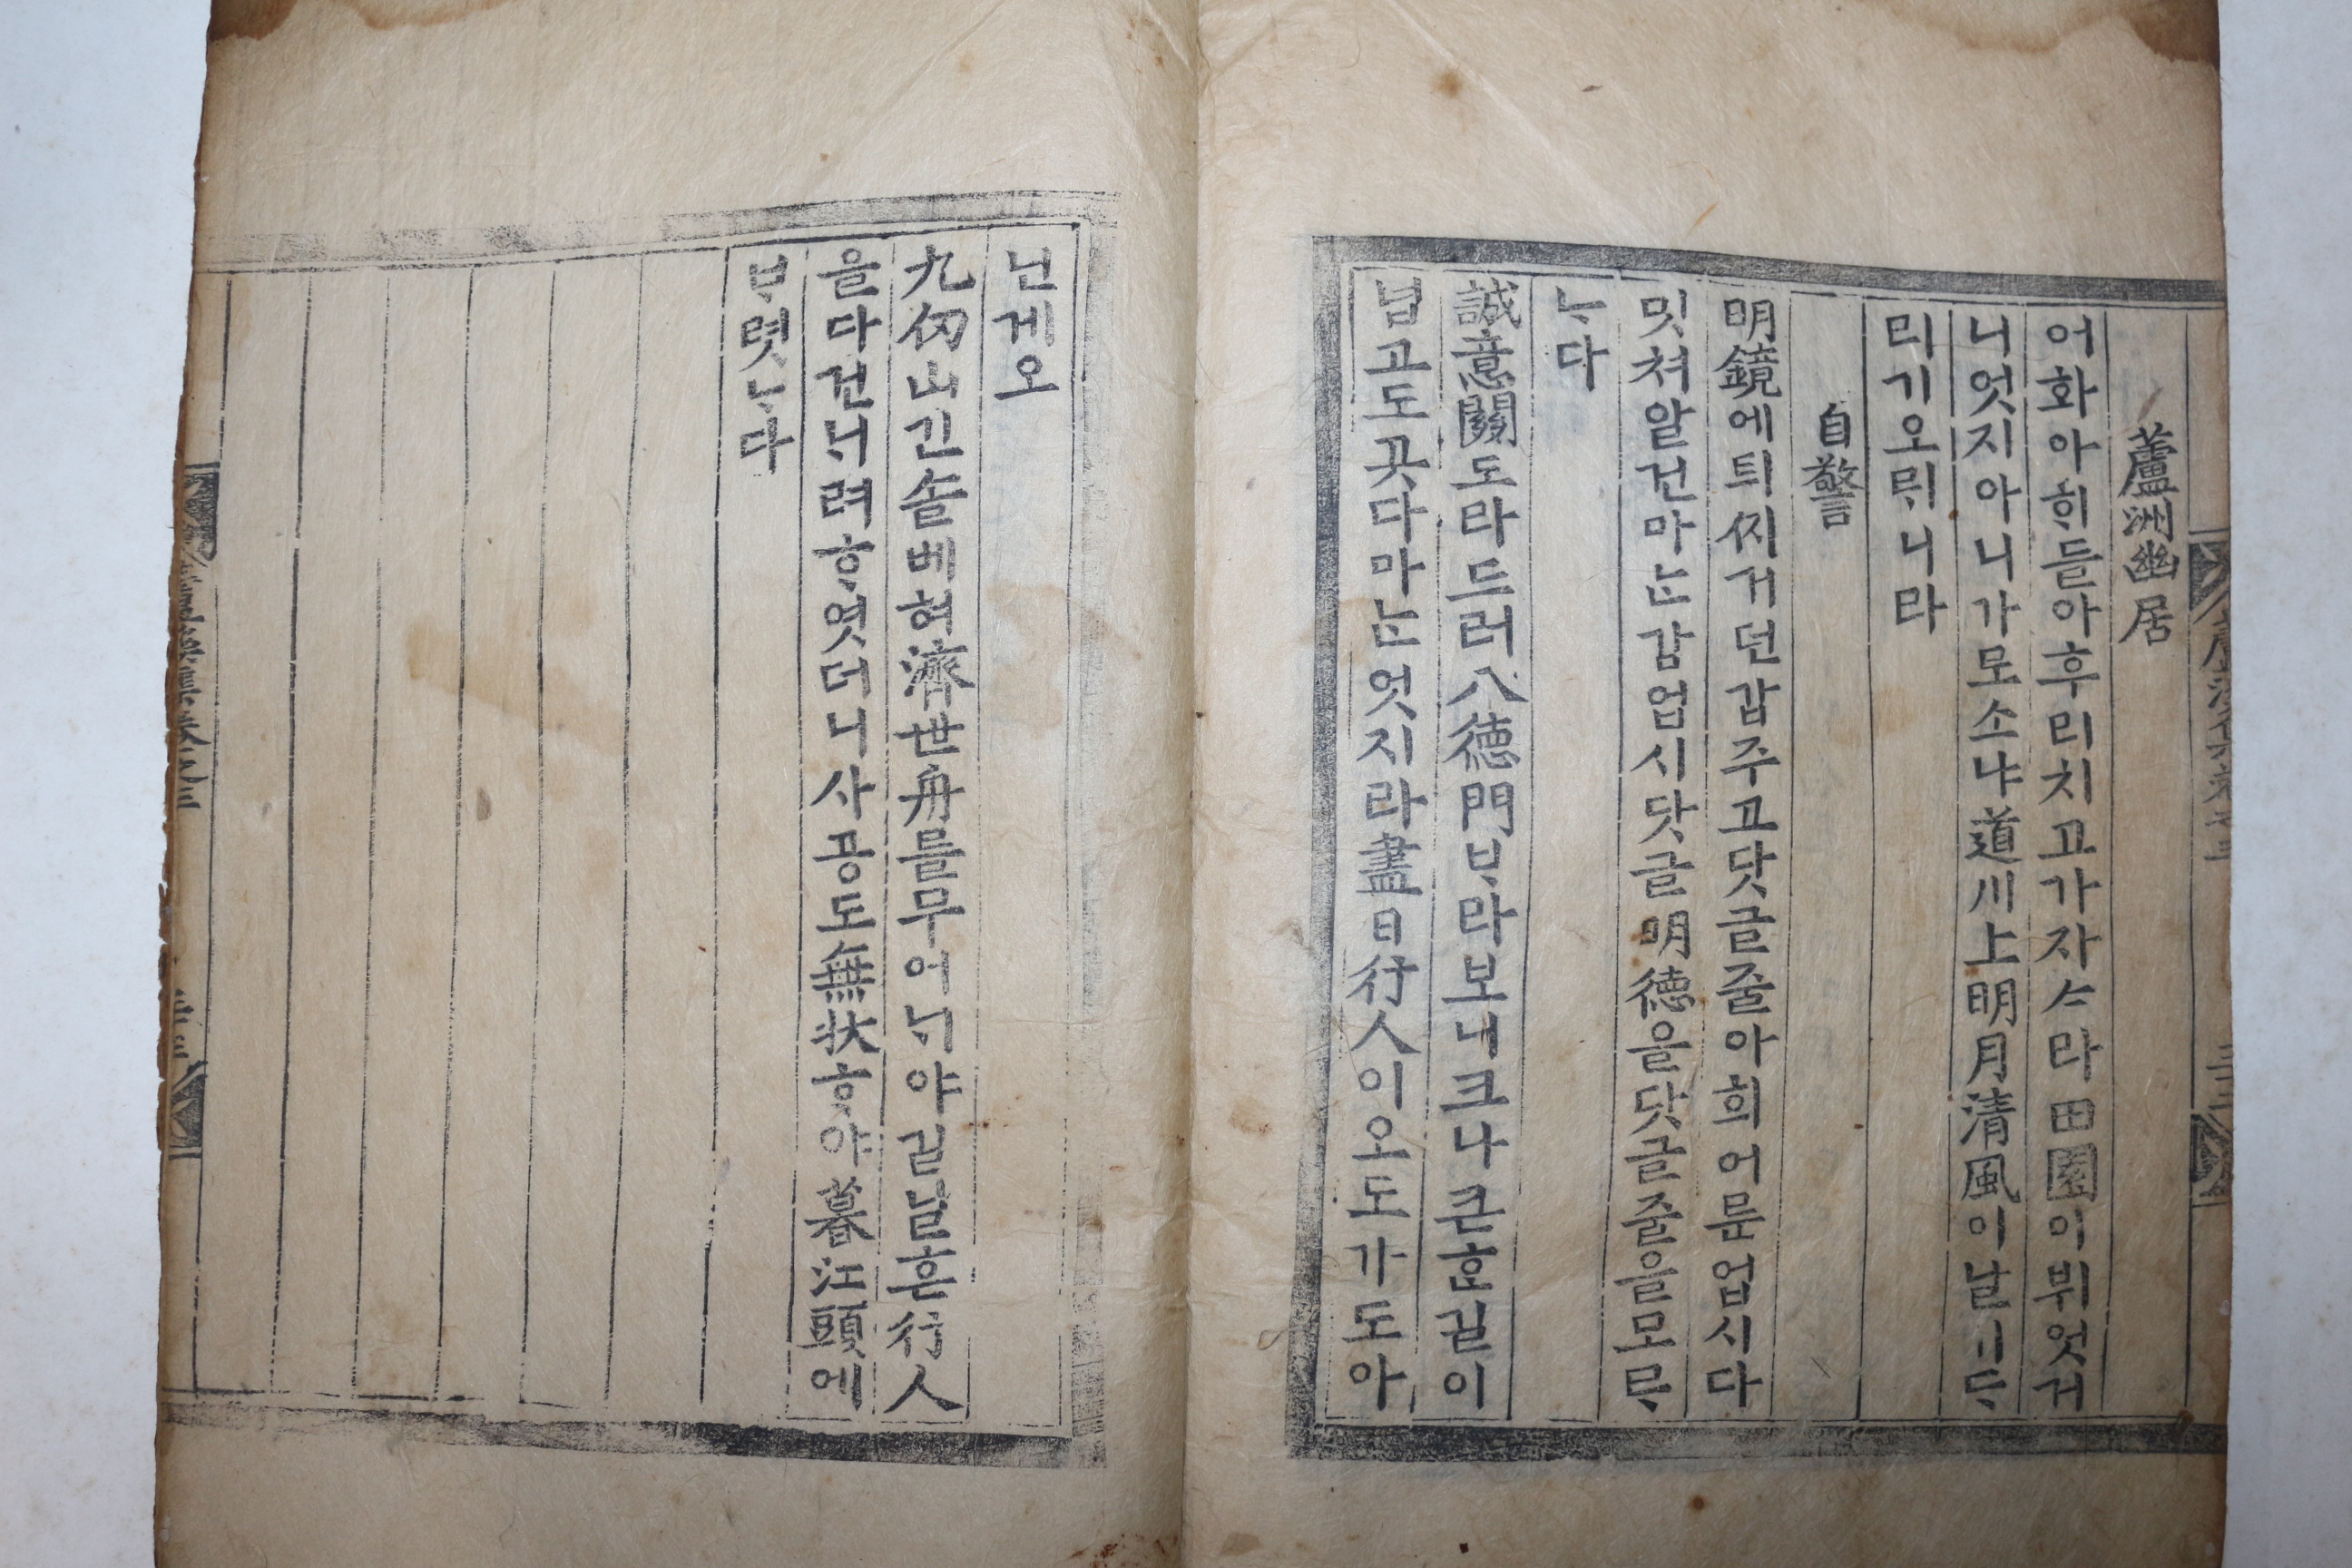 蘆洲幽居
어화아ᄒᆡ들아후리치고가쟈ᄉᆞ라田園이뷔엇거
니엇지아니가모소냐道川上明月清風이날기ᄃᆞ
리기오ᄅᆡ니라
自警
明鏡에틔ᄭᅵ거던갑주고닷글줄아희어룬업시다
밋쳐알건마ᄂᆞᆫ갑업시닷글明德을닷글줄을모ᄅᆞ
ᄂᆞ다
誠意關도라드러八德門ᄇᆞ라보니크나큰ᄒᆞᆫ길이
넙고도곳다마ᄂᆞᆫ엇지라盡日行人이오도가도아
닌게오
九仞山긴솔베혀濟世舟를무어ᄂᆡ야길닐흔行人
을다건ᄂᆡ려ᄒᆞ엿더니사공도無狀ᄒᆞ야暮江頭에
ᄇᆞ렷ᄂᆞ다